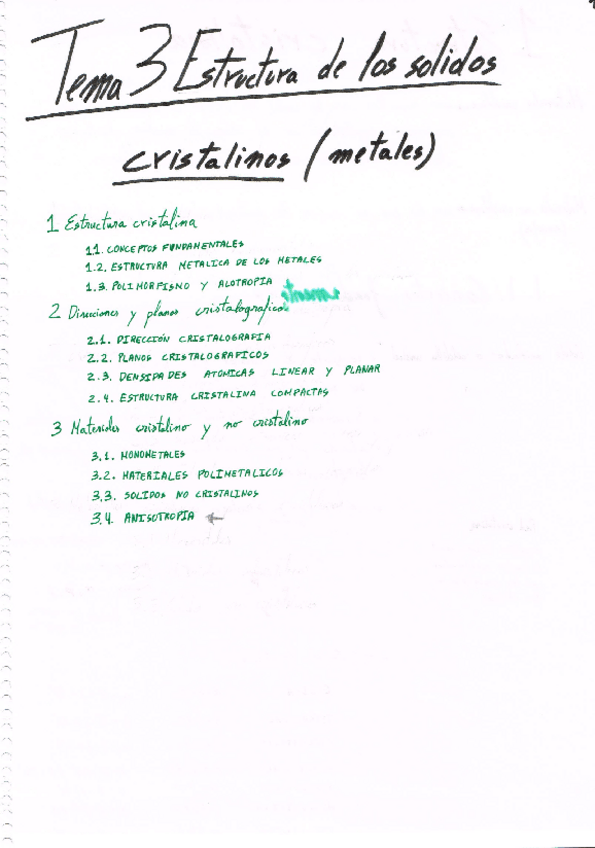 Tema 3 Estructura de los solidos
cristalinos (metales)
1 Estructura cristalina
1.1. CONCEPTOS FUNDAMENTALES
1.2. ESTRUCTURA METALICA DE LOS METALES
1.3. POLIMORFISMO Y ALOTROPIA
2 Direcciones y planos cristalograficos
2.1. DIRECCIÓN CRISTALOGRAFIA
2.2. PLANOS CRISTALOGRAFICOS
2.3. DENSIDADES ATOMICAS LINEAR Y PLANAR
2.4. ESTRUCTURA CRISTALINA COMPACTAS
3 Materiales cristalino y no cristalino
3.1. MONOMETALES
3.2. MATERIALES POLIMETALICOS
3.3. SOLIDOS NO CRISTALINOS
3.4. ANISOTROPIA